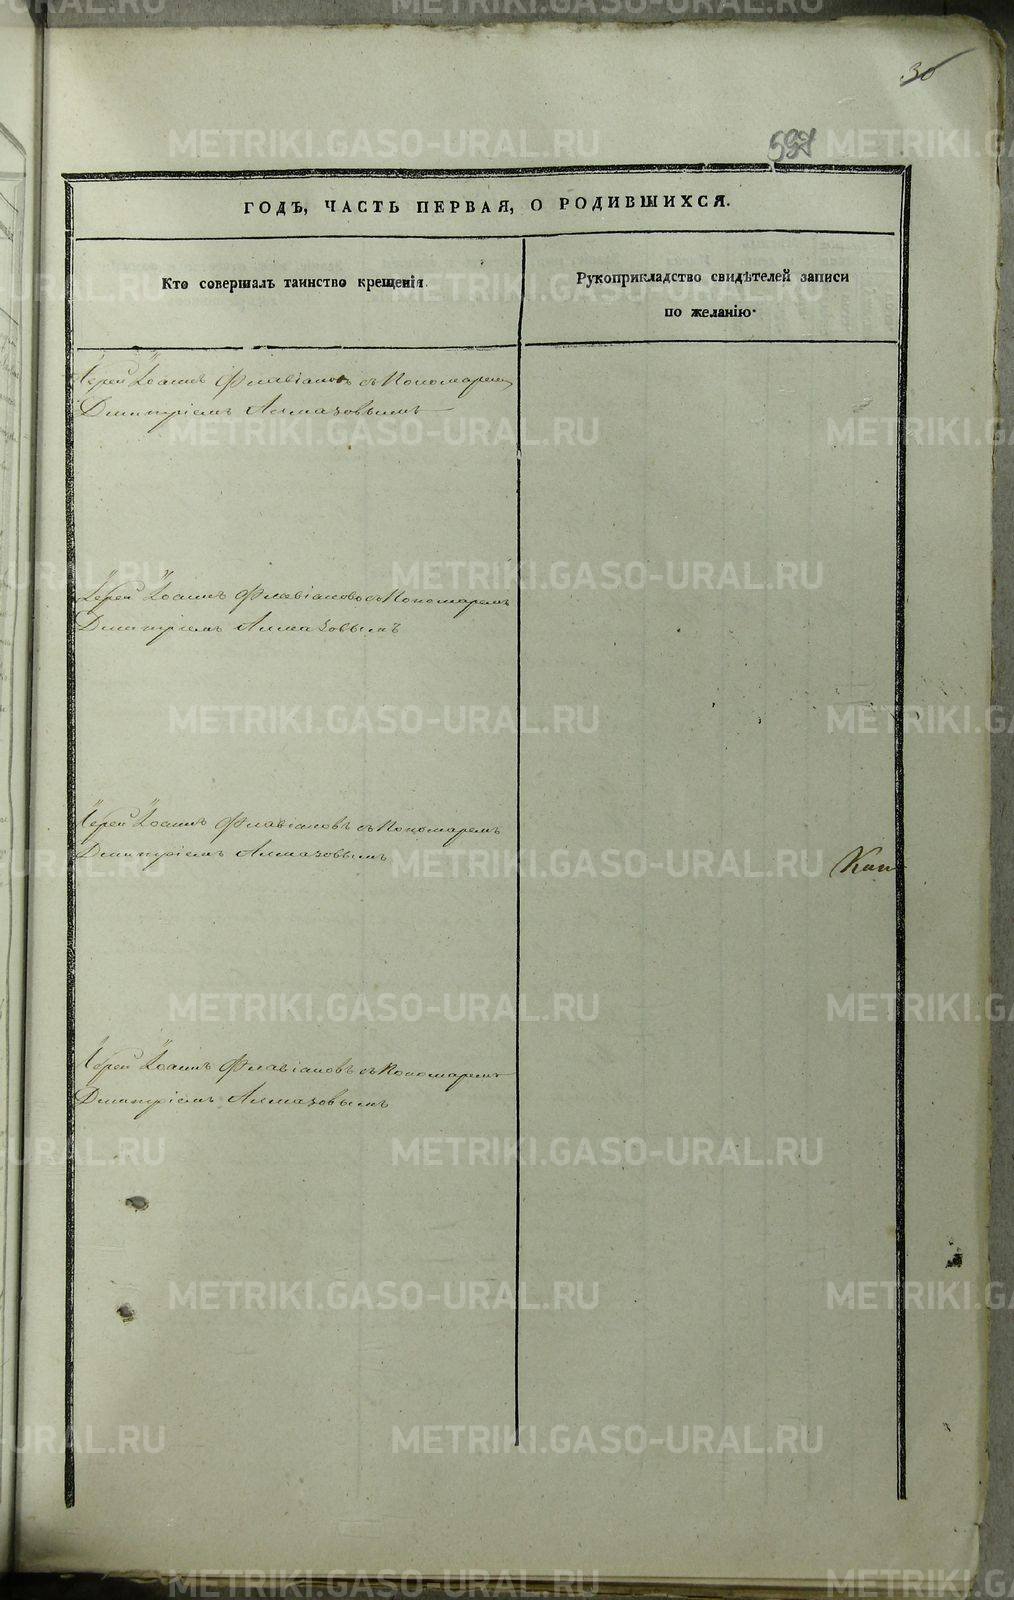 30
ГОДЪ, ЧАСТЬ ПЕРВАЯ, О РОДИВШИХСЯ.
Кто совершалъ таинство крещенія.
Рукоприкладство свидѣтелей записи
по желанію.
Іерей Іоаннъ Флавіановъ съ Пономаремъ
Димитріемъ Алмазовымъ
Іерей Іоаннъ Флавіановъ съ Пономаремъ
Димитріемъ Алмазовымъ
Іерей Іоаннъ Флавіановъ съ Пономаремъ
Димитріемъ Алмазовымъ
Іерей Іоаннъ Флавіановъ съ Пономаремъ
Димитріемъ Алмазовымъ
METRIKI.GASO-URAL.RU